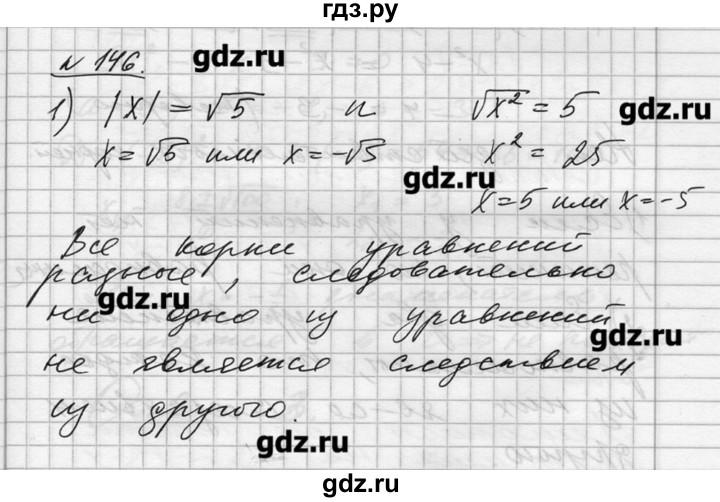 гдз.ру
№ 146.
gdz.ru
1) |x| = √5 и √x² = 5
gdz.ru
x = √5 или x = -√5 x² = 25
gdz.ru
x = 5 или x = -5
Все корни уравнений
разные, следовательно
gdz.ru
ни одно из уравнений
gdz.ru
не является следствием
из другого.
gdz.ru